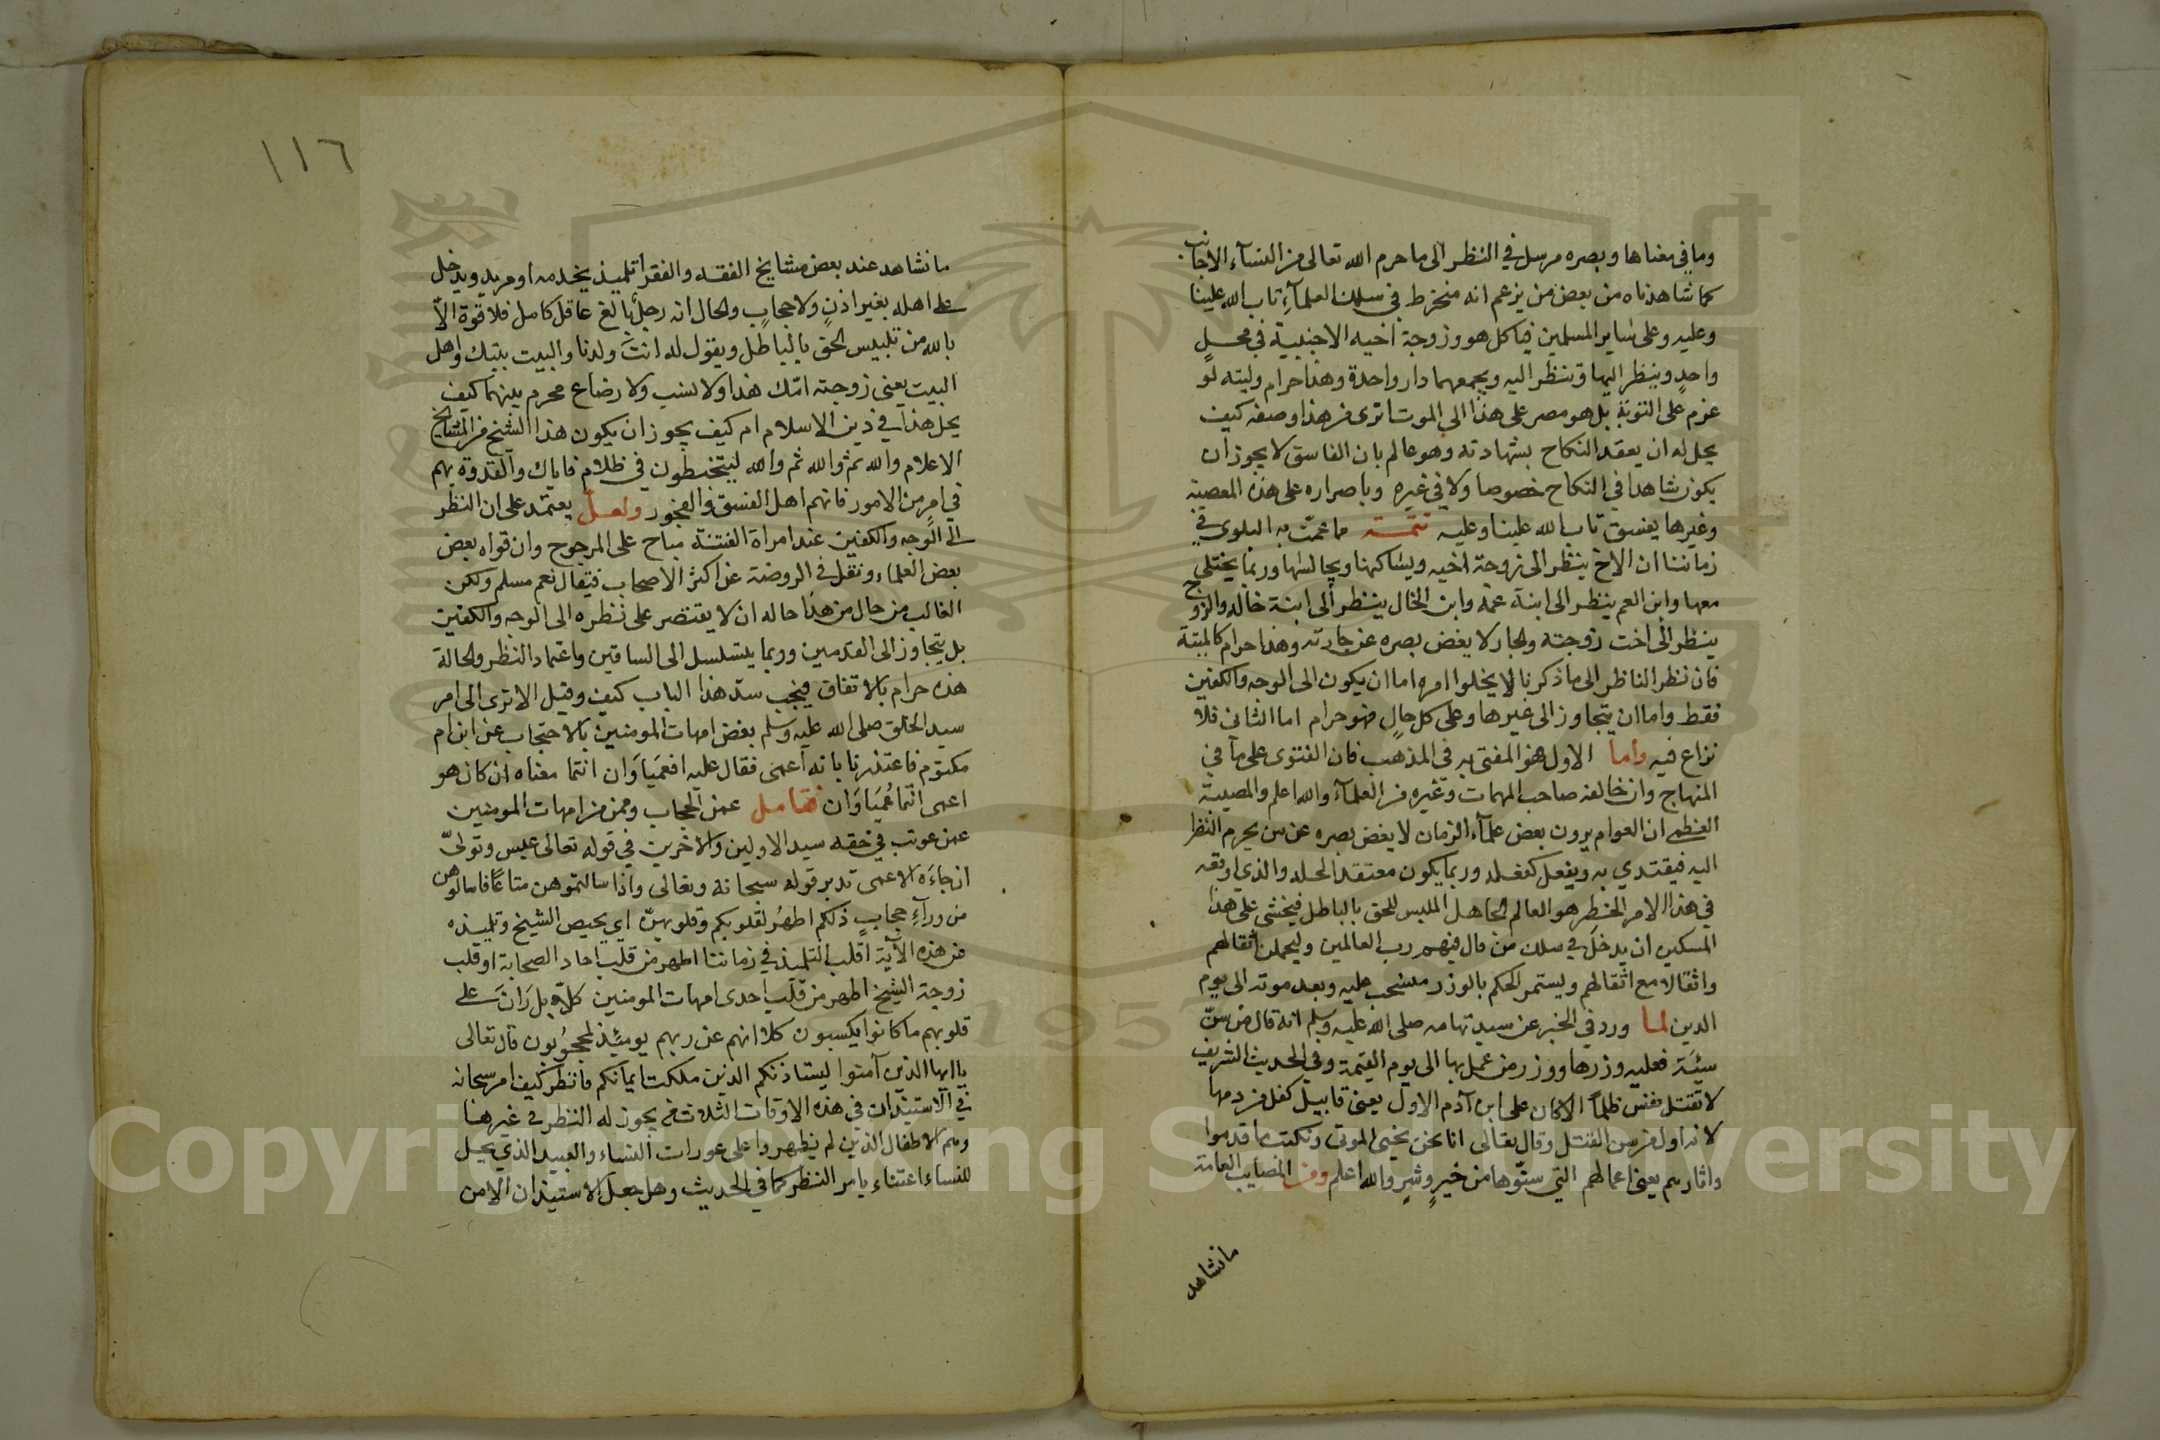 وما في معناها وبصره مرسل في النظر الى ما حرم الله تعالى من النسآء الاجانب
كما شاهدناه من بعض من يزعم انه منخرط في سلك العلمآء تاب الله علينا
وعليه وعلى ساير المسلمين فياكل هو وزوجة اخيه الاجنبية في محلٍ
واحدٍ وينظر اليها وتنظر اليه ويجمعهما دار واحدة وهذا حرام وليته لو
عزم على التوبة بل هو مصر على هذا الى الموت اترى من هذا وصفه كيف
يحل له ان يعقد النكاح بشهادته وهو عالم بان الفاسق لا يجوز ان
يكون شاهدا في النكاح خصوصا ولا في غيره وباصراره على هذه المعصية
وغيرها يفسق تاب الله علينا وعليه تتمـــة مما عمّت به البلوى في
زماننا ان الاخ ينظر الى زوجة اخيه ويساكنها ويجالسها وربما يختلي
معها وابن العم ينظر الى ابنة عمه وابن الخال ينظر الى ابنة خاله والزوج
ينظر الى اخت زوجته والجار لا يغض بصره عن جارته وهذا حرام كالميتة
فان نظر الناظر الى ما ذكرنا لا يخلوا امره اما ان يكون الى الوجه والكفين
فقط واما ان يتجاوز الى غيرها وعلى كل حالٍ فهو حرام اما الثاني فلا
نزاع فيه وأما الاول هو المفتى به في المذهب فان الفتوى على ما في
المنهاج وان خالفه صاحب المهمات وغيره من العلمآء والله اعلم والمصيبة
العظمى ان العوام يرون بعض علمآء الزمان لا يغض بصره عن من يحرم النظر
اليه فيقتدي به ويفعل كفعله وربما يكون معتقد الحله والذي اوقعه
في هذا الامر الخطر هو العالم الجاهل الملبس للحق بالباطل فيخشى على هذا
المسكين ان يدخل في سلك من قال فيهم رب العالمين وليحملن اثقالهم
واثقالا مع اثقالهم ويستمر الحكم بالوزر منسحب عليه وبعد موته الى يوم
الدين لما ورد في الخبر عن سيد تهامه صلى الله عليه وسلم انه قال من سنّ
سيئَة فعليه وزرها ووزر من عمل بها الى يوم القيمة وفي الحديث الشريف
لا تقتل نفس ظلماً الا كان على ابن آدم الاول يعني قابيل كفل من دمها
لانه اول من سن القتل وقال تعالى انا نحن نحيي الموتى ونكتب ما قدموا
واثارهم يعني اعمالهم التي سنّوها من خيرٍ وشرٍ والله اعلم ومن المصايب العامة
ما نشاهد
١١٦
ما نشاهد عند بعض مشايخ الفقه والفقرا تلميذ يخدمه او مريد ويدخل
على اهله بغير اذنٍ ولا حجابٍ والحال انه رجل بالغ عاقل كامل فلا قوة الاّ
بالله من تلبيس الحق بالباطل ويقول له انتَ ولدنا والبيت بيتك واهل
البيت يعني زوجته امّك هذا ولا نسب ولا رضاع محرم بينهما كيف
يحل هذا في دين الاسلام ام كيف يجوز ان يكون هذا الشيخ من المشايخ
الاعلام والله ثم والله ثم والله ليتخبطون في ظلام فاياك والقدوة بهم
في امرٍ من الامور فانهم اهل الفسق والفجور ولعــلّ يعتمد على ان النظر
الى الوجه والكفين عند امراة الفتنة مباح على المرجوح وان قواه بعض
بعض العلماء ونقل في الروضة عن اكثر الاصحاب فيقال نعم مسلم ولكن
الغالب من حال من هذا حاله ان لا يقتصر على نظره الى الوجه والكفين
بل يتجاوز الى القدمين وربما يتسلسل الى الساقين واعتماد النظر والحالة
هذه حرام بالاتفاق فيجب سدّ هذا الباب كيف وقيل الا ترى الى امر
سيد الخلق صلى الله عليه وسلم بعض امهات المومنين بالاحتجاب عن ابن ام
مكتوم فاعتذرنا بانه أعمى فقال عليه افعميَا وَان انتما معناه ان كان هو
اعمى انتما عُميَا وَان فتامل عمن الحجاب وممن من امهات المومنين
عمن عوتب في حقه سيد الاولين والاخرين في قوله تعالى عبس وتولىّ
ان جاءَه الاعمى تدبر قوله سبحانه وتعالى واذا سالتموهن متاعًا فاسالوهن
من ورآءِ حجابٍ ذلكم اطهرُ لقلوبكم وقلوبهنّ اي يحيص الشيخ وتلميذه
عن هذه الآية اقلب التلميذ في زماننا اطهر من قلب احاد الصحابة او قلب
زوجة الشيخ اطهر من قلب احدى امهات المومنين كلا بل رَانَ على
قلوبهم ما كانوا يكسبون كلا انهم عن ربهم يوميٍذ لمحجوُبون قال تعالى
يا ايها الذين آمنوا ليستاذنكم الذين ملكت ايمانكم فانظر كيف امر سبحانه
في الاستيذان في هذه الاوقات الثلاث من يجوز له النظر في غيرها
وهم الاطفال الذين لم يظهروا على عورات النساء والعبيد الذي يحل
للنساء اعتناء بامر النظر كما في الحديث وهل جعل الاستيذان الا من
Copyright © King Saud University
1957